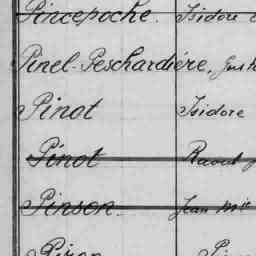 Pincepoche. Isidore
Pinel-Peschardière, Just
Pinot Isidore
Pinot Raoul
Pinson Jean Mie
Piron